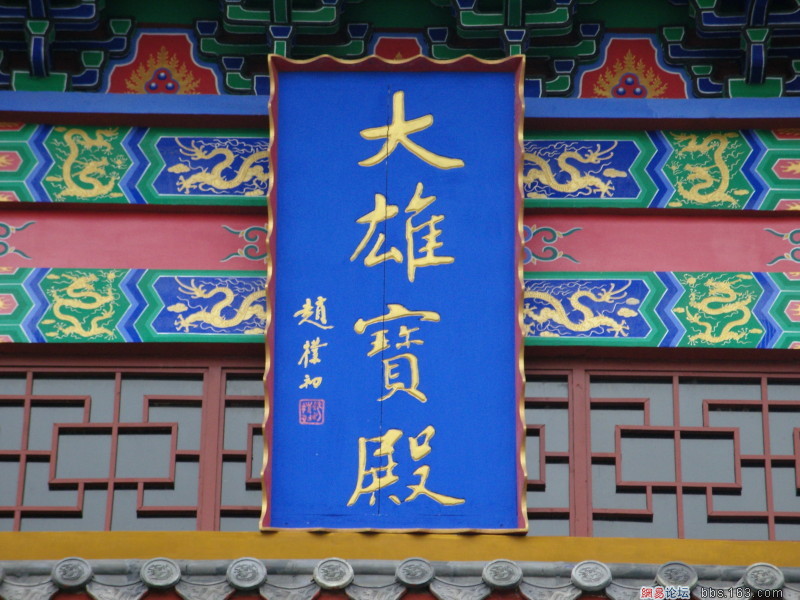 大雄寶殿
趙樸初
网易论坛 bbs.163.com